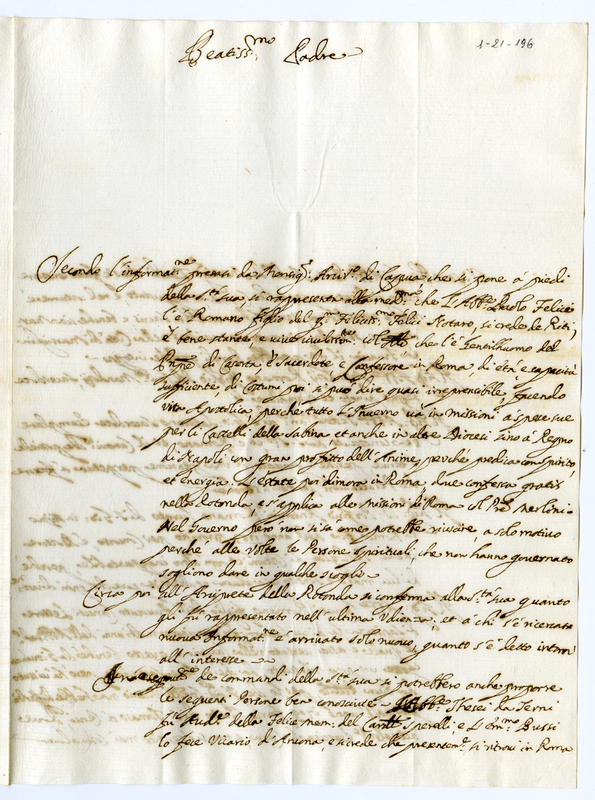 Beatiss.mo Padre
1-21-196
Secondo l'informat.ne presasi da Monsig.r Arciv.o di Capua che si pone à piedi
della S.tà Sua, si rappresenta alla med.ma che l'Abb.e Paolo Felice
l'è Romano figlio del Felici Notaro, si crede de Riti,
è bene stante, e vive che l'è Gentilhuomo del
di Caserta, è Sacerdote e Confessore in Roma, di età, e capacità
sufficiente, di Costumi poi si può dire quasi irreprensibile, facendo
vita Apostolica, perche tutto l'Inverno va in missioni à spese sue
per li Castelli della Sabina et anche in altre Diocesi sino à Regno
di Napoli con gran profitto dell'Anime, perché predica con spirito,
et energia. L'estate poi dimora in Roma, dove confessa gratis
nella Rotonda, e s'applica alle Missioni di Roma
Nel Governo però non si sà come potrebbe riuscire, à solo motivo
perché alle volte le Persone spirituali, che non hanno governato
sogliono dare in qualche scoglio
Circa poi all'Arciprete della Rotonda si conferma alla S.tà Sua quanto
gli fù rappresentato nell'ultima Udienza, et à chi s'è ricercata
nuova Informat.ne è arrivato solo nuovo, quanto s'è detto intorno
all'interesse
de commandi della S.tà Sua si potrebbero anche proporre
le seguenti Persone ben conosciute Thesei da Terni
fù Aud.re della Felice mem: del Card. Sperelli, e l'Em.mo Bussi
lo fece Vicario d'Ancona, e si crede che presentem.e si ritrovi in Roma